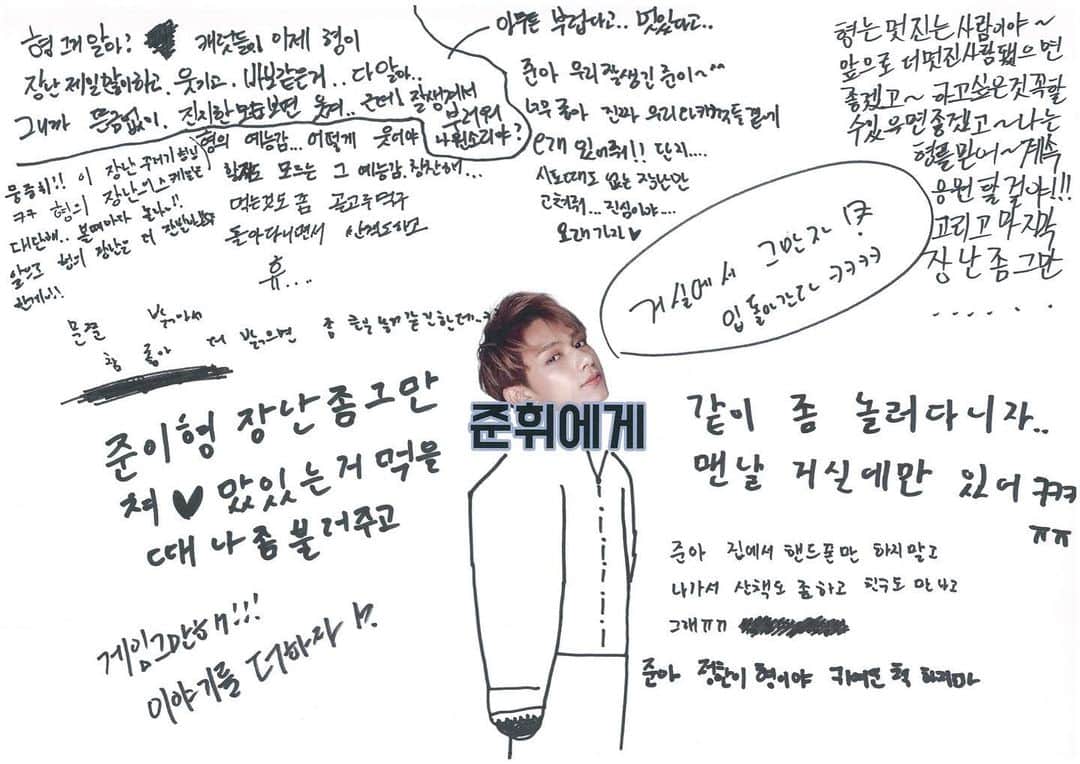 형 그거 알아? 캐럿들이 이제 형이
장난 제일 많이하고. 웃기고. 바보같은거.. 다 알아..
그니까 뜬금없이. 진지한 모습보면 웃겨.. 근데! 잘생겨서
부러워
나 뭔소리야?
아무튼 부럽다고.. 멋있다고..
형의 예능감... 어떻게 웃어야
할지도 모르는 그 예능감 칭찬해...
먹는것도 좀 골고루먹구
돌아다니면서 산책도하고
휴...
뭉쥬휘!! 이 장난꾸러기 형님
ㅋㅋ 형의 장난의 스케일은
대단해.. 볼때마다 놀라!!
앞으로 형의 장난은 더
함께!!
준아 우리 잘생긴 준이~^^
너무 좋아 진짜 우리 곁에
오래 있어줘!! 단지....
시도때도 없는 장난만
고쳐줘... 진심이야....
오래가자 ♥
형는 멋진는 사람이야~
앞으로 더 멋진사람 됐으면
좋겠고~ 하고싶은것 꼭할
수있우면 좋겠고~ 나는
형를 믿어~ 계속
응원 할 걸야!!!
그리고 마지막
장난 좀 그만
. . . . .
거실에서 그만자!?
입 돌아간다 ㅋㅋㅋㅋ
문준 밝아서
참 좋아 더 밝으면 좀 큰일 날거 같긴한데..ㅋ
준이형 장난좀그만
쳐 ♥ 맜있는거 먹을
때 나 좀 불러주고
게임그만해!!!
이야기를 더하자!?
준휘에게
같이 좀 놀러다니자..
맨날 거실에만 있어 ㅋㅋㅋ
ㅠㅠ
준아 집에서 핸드폰만 하지말고
나가서 산책도 좀하고 친구도 만나고
그래ㅠㅠ
준아 정한이 형이야 귀여운 척 하지마